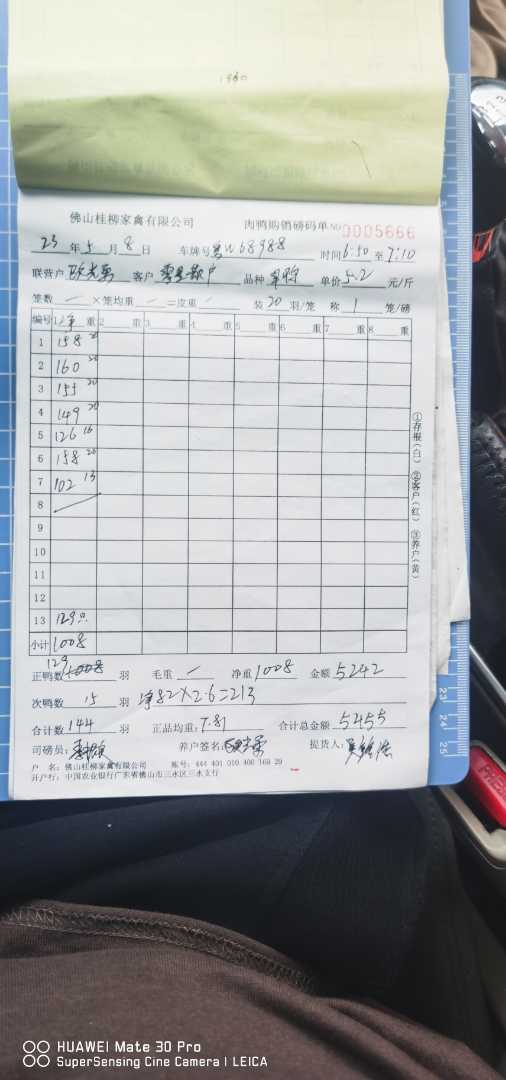 1960
佛山桂柳家禽有限公司 肉鸭购销磅码单 NO 0005666
23 年 5 月 8 日 车牌号 粤W68988 时间 6:50 至 7:10
联营户 客户 品种 单价 5.2 元/斤
笼数 — ×笼均重 — =皮重 — 装 20 羽/笼 称 1 笼/磅
编号 1 净 重 2 重 3 重 4 重 5 重 6 重 7 重 8 重
1 158 20
2 160 20
3 155 20
4 149 20
5 126 16
6 158 20
7 102 13
8
9
10
11
12
13 129只
小计 1008
①存根(白) ②客户(红) ③养户(黄)
129
正鸭数 1008 羽 毛重 — 净重 1008 金额 5242
次鸭数 15 羽 净82×2.6=213
合计数 144 羽 正品均重: 7.81 合计总金额 5455
司磅员: 养户签名: 提货人:
户 名: 佛山桂柳家禽有限公司 账号: 444 401 010 400 169 29
开户行: 中国农业银行广东省佛山市三水区三水支行
23
24
25
HUAWEI Mate 30 Pro
SuperSensing Cine Camera | LEICA